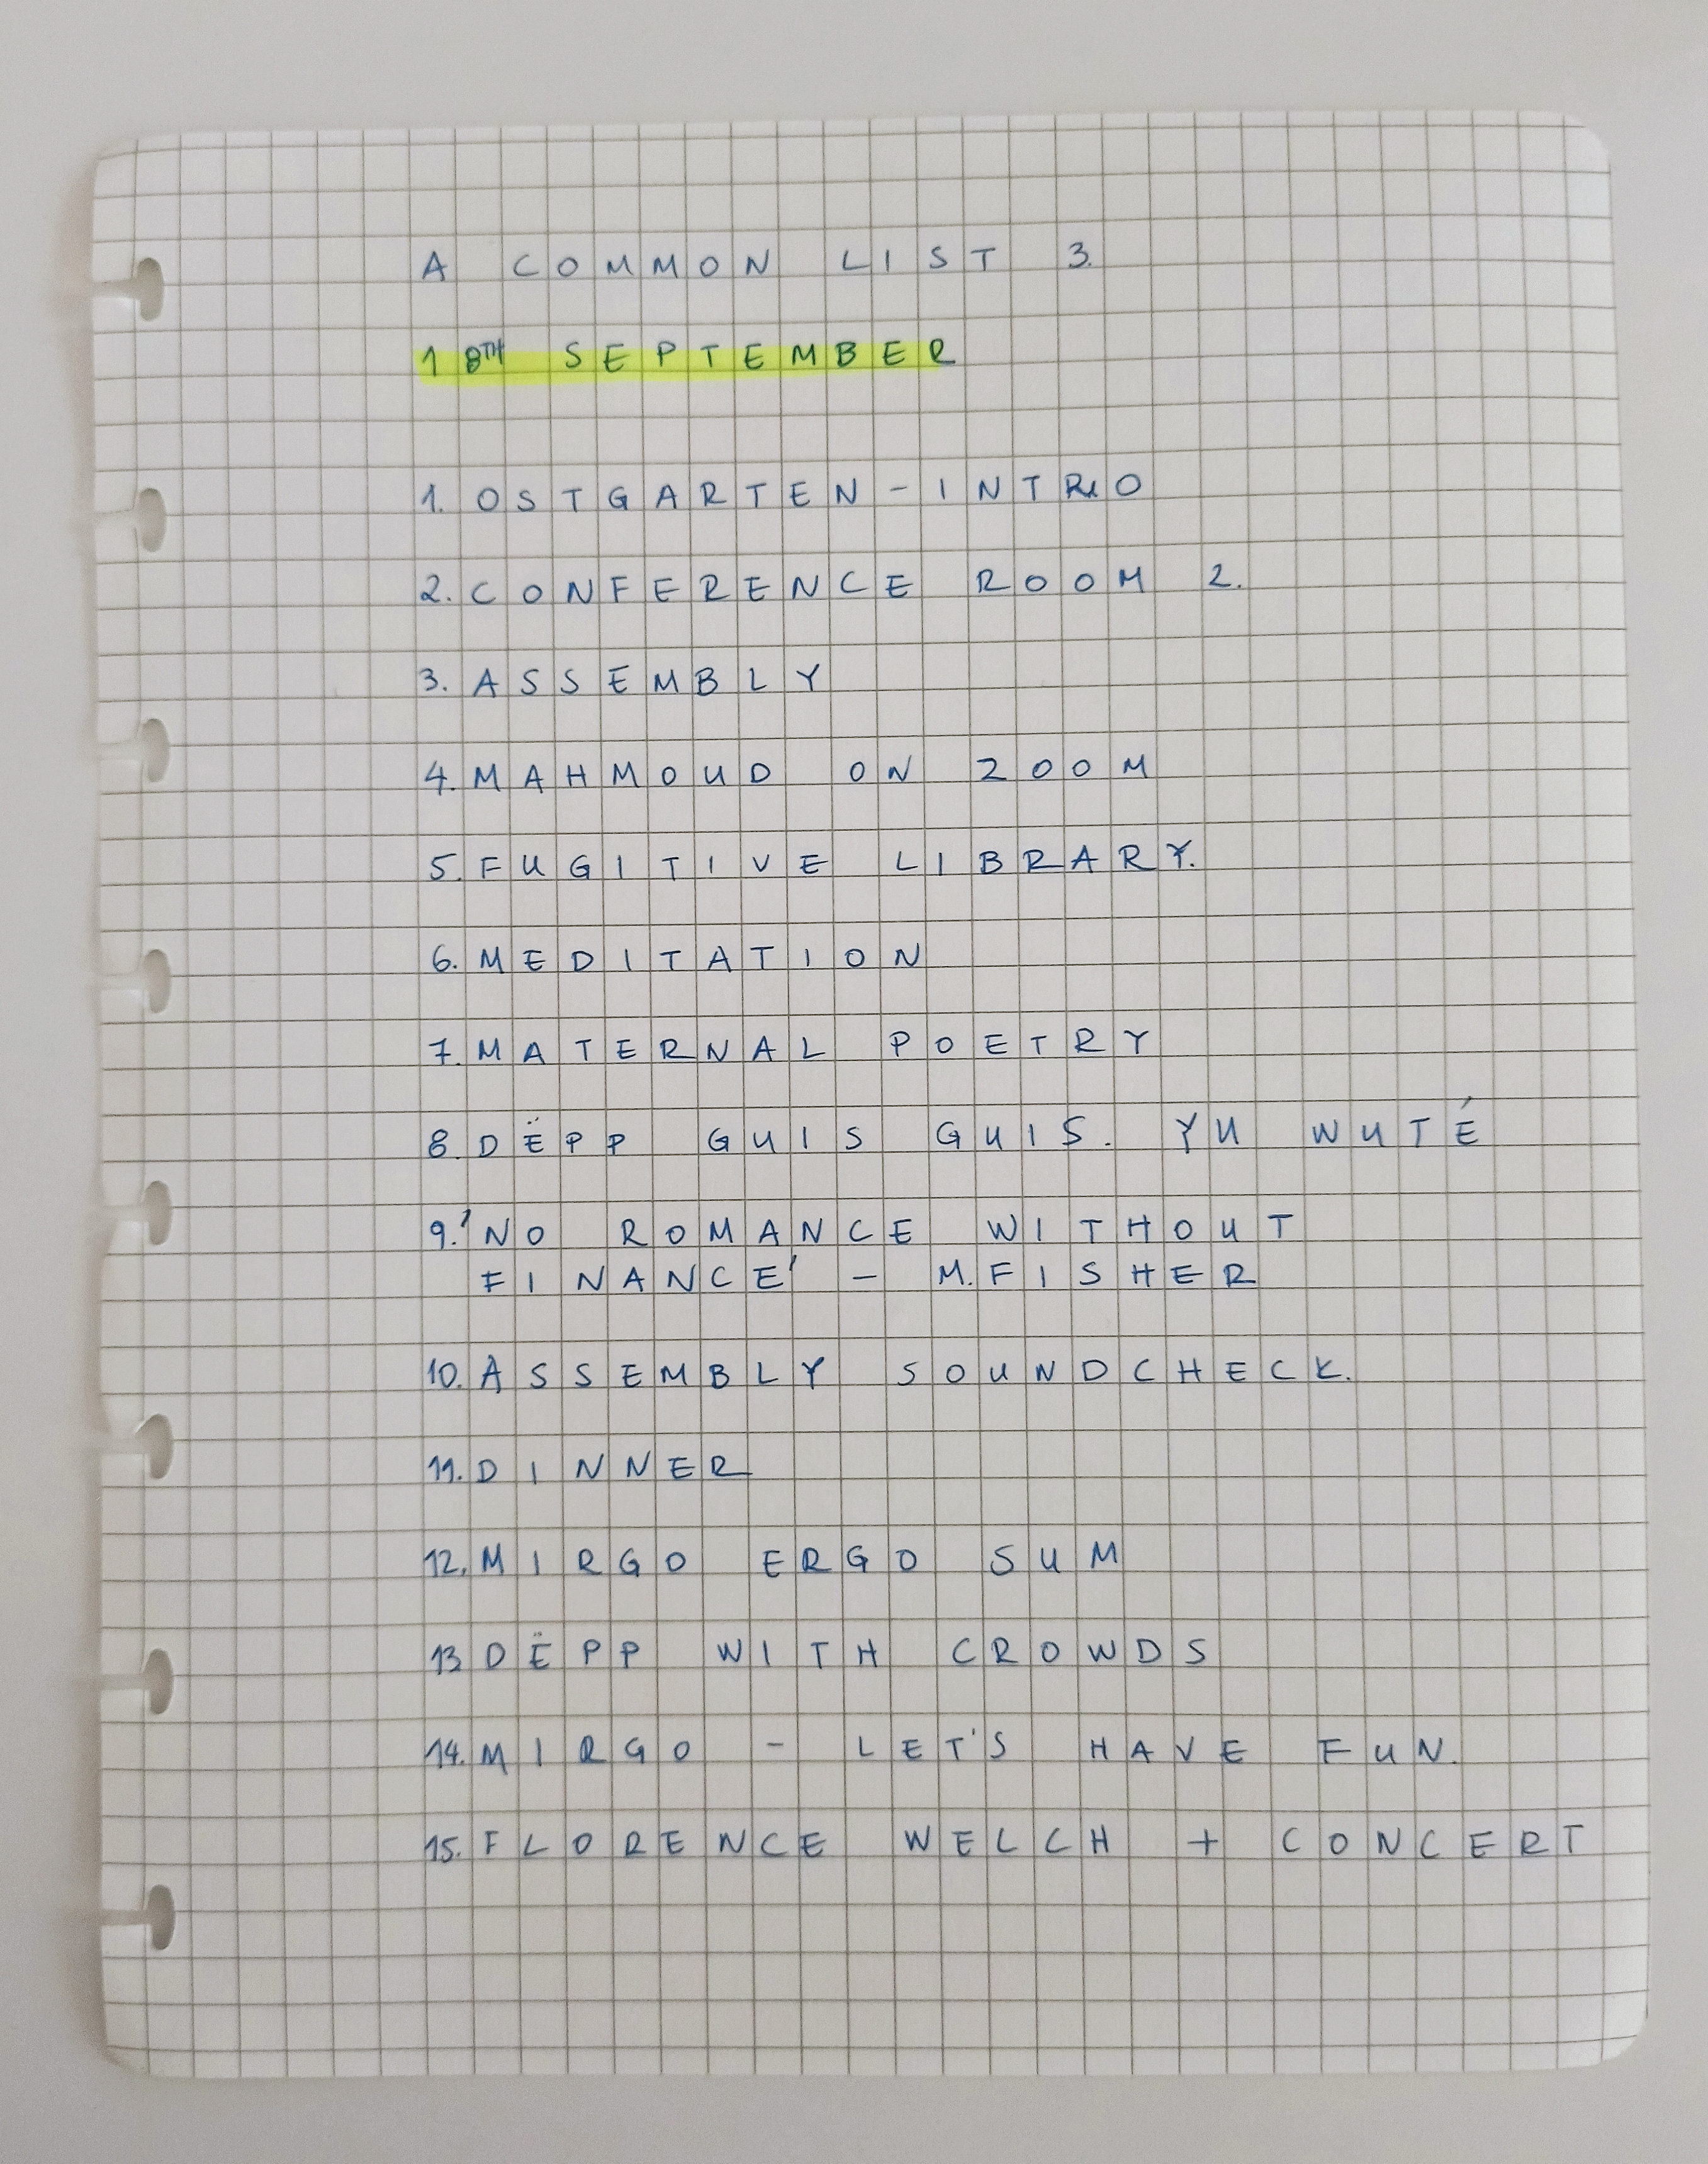 A COMMON LIST 3.
18TH SEPTEMBER
1. OSTGARTEN - INTRO
2. CONFERENCE ROOM 2.
3. ASSEMBLY
4. MAHMOUD ON ZOOM
5. FUGITIVE LIBRARY.
6. MEDITATION
7. MATERNAL POETRY
8. DËPP GUIS GUIS. YU WUTÉ
9. 'NO ROMANCE WITHOUT
FINANCE' - M. FISHER
10. ASSEMBLY SOUNDCHECK.
11. DINNER
12. MIRGO ERGO SUM
13 DËPP WITH CROWDS
14. MIRGO - LET'S HAVE FUN.
15. FLORENCE WELCH + CONCERT